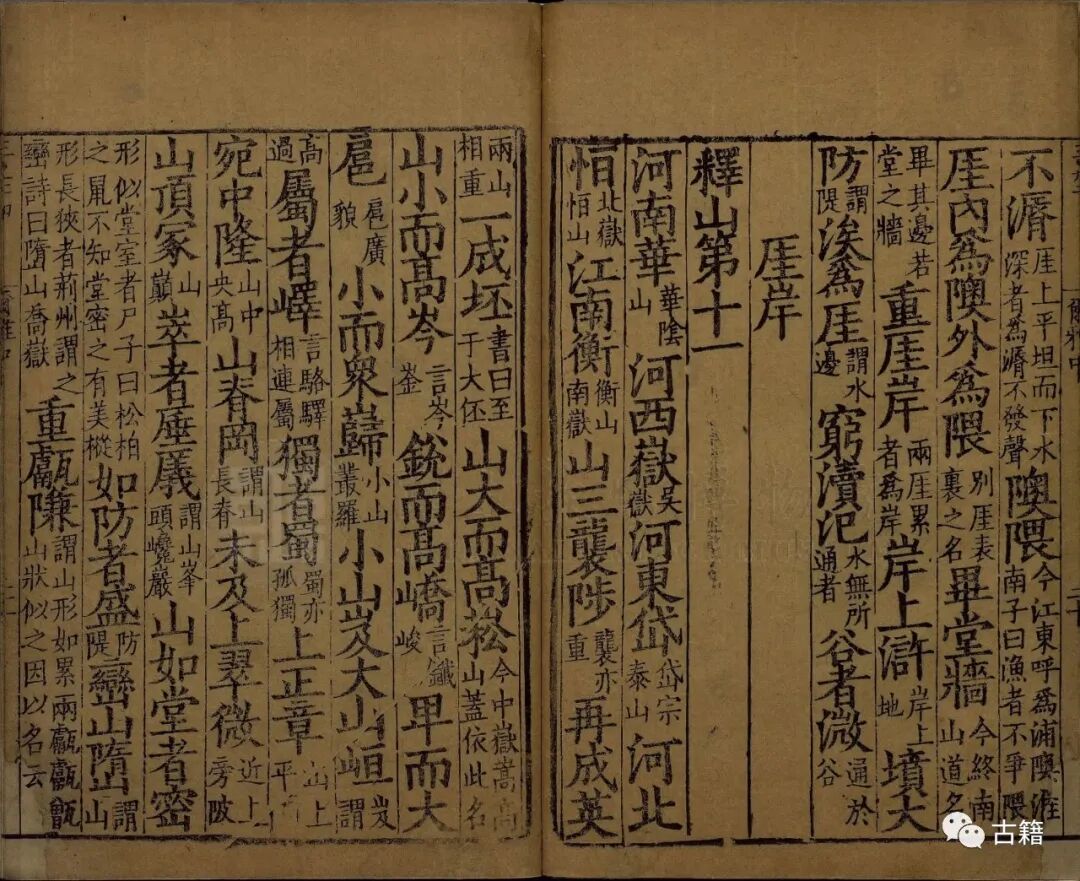 不漘厓上平坦而下水深者爲漘不發聲隩隈今江東呼爲浦隩淮南子曰漁者不爭隈
厓內爲隩外爲隈別厓表裏之名畢堂牆今終南山道名
畢其邊若堂之牆重厓岸兩厓累者爲岸岸上滸岸上地墳大
防謂隄涘爲厓謂水邊窮瀆汜水無所通者谷者微通於谷
厓岸
釋山第十一
河南華華陰山河西嶽吳嶽河東岱岱宗泰山河北
恒北嶽恒山江南衡衡山南嶽山三襲陟襲亦重再成英
兩山相重一成坯書曰至于大伾山大而高崧今中嶽嵩高山蓋依此名
山小而高岑言岑崟銳而高嶠言鑯峻卑而大
扈扈廣貌小而衆巋小山叢羅小山岌大山峘岌謂
高過屬者嶧言駱驛相連屬獨者蜀蜀亦孤獨上正章山上平
宛中隆山中央高山脊岡謂山長脊未及上翠微近上旁陂
山頂冢山巔崒者厜㕒謂山峯頭巉巖山如堂者密
形似堂室者尸子曰松柏之鼠不知堂密之有美樅如防者盛防隄巒山墮謂山
形長狹者荊州謂之巒詩曰墮山喬嶽重甗隒謂山形如累兩甗甗甑山狀似之因以名云
古籍